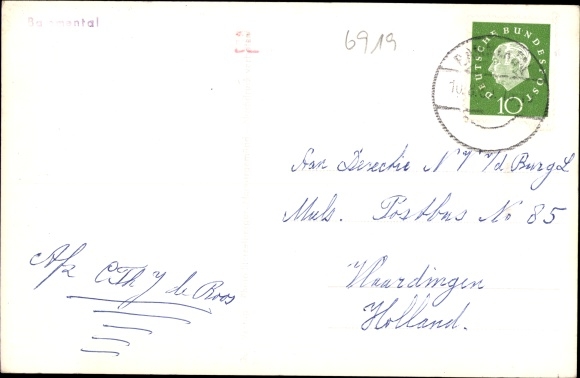 Bammental
6919
DEUTSCHE BUNDESPOST
10
Aan Directie N V v/d Burg L
Muls. Postbus No 85
Vlaardingen
Holland.
Afz CTh J de Roos